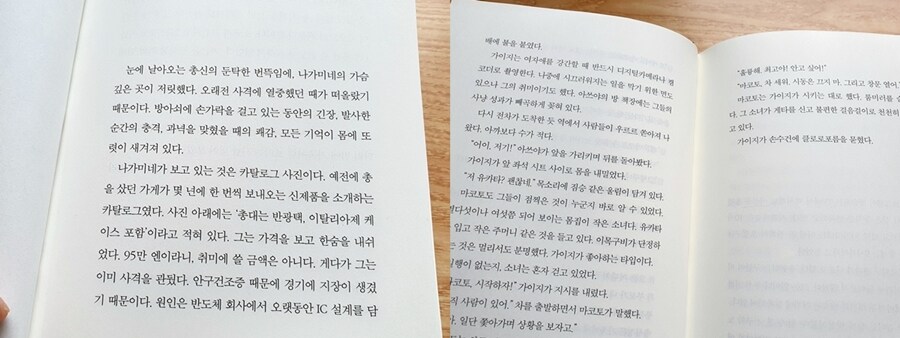 눈에 날아오는 총신의 둔탁한 번뜩임에, 나가미네의 가슴
깊은 곳이 저릿했다. 오래전 사격에 열중했던 때가 떠올랐기
때문이다. 방아쇠에 손가락을 걸고 있는 동안의 긴장, 발사한
순간의 충격, 과녁을 맞혔을 때의 쾌감, 모든 기억이 몸에 또
렷이 새겨져 있다.
나가미네가 보고 있는 것은 카탈로그 사진이다. 예전에 총
을 샀던 가게가 몇 년에 한 번씩 보내오는 신제품을 소개하는
카탈로그였다. 사진 아래에는 ‘총대는 반광택, 이탈리아제 케
이스 포함’이라고 적혀 있다. 그는 가격을 보고 한숨을 내쉬
었다. 95만 엔이라니, 취미에 쓸 금액은 아니다. 게다가 그는
이미 사격을 관뒀다. 안구건조증 때문에 경기에 지장이 생겼
기 때문이다. 원인은 반도체 회사에서 오랫동안 IC 설계를 담
배에 불을 붙였다.
가이지는 여자애를 강간할 때 반드시 디지털카메라나 캠
코더로 촬영한다. 나중에 시끄러워지는 일을 막기 위한 면도
있으나 그의 취미이기도 했다. 아쓰야의 방 책장에는 그들의
사냥 성과가 빼곡하게 꽂혀 있다.
다시 전차가 도착한 듯 역에서 사람들이 우르르 쏟아져 나
왔다. 아까보다 수가 적다.
“어이, 저기!” 아쓰야가 앞을 가리키며 뒤를 돌아봤다.
가이지가 앞 좌석 시트 사이로 몸을 내밀었다.
“저 유카타? 괜찮네.” 목소리에 짐승 같은 울림이 담겨 있다.
마코토도 그들이 점찍은 것이 누군지 바로 알 수 있었다.
열다섯이나 여섯쯤 되어 보이는 몸집이 작은 소녀다. 유카타
입고 작은 주머니 같은 것을 들고 있다. 이목구비가 단정하
는 것은 멀리서도 분명했다. 가이지가 좋아하는 타입이다.
행이 없는지, 소녀는 혼자 걷고 있었다.
마코토, 시작하자!” 가이지가 지시를 내렸다.
직 사람이 있어.” 차를 출발하면서 마코토가 말했다.
아, 일단 쫓아가며 상황을 보자고.”
“훌륭해, 최고야! 안고 싶어!”
“마코토, 차 세워, 시동은 끄지 마. 그리고 창문 열어
마코토는 가이지가 시키는 대로 했다. 룸미러를
다. 그 소녀가 게타를 신고 불편한 걸음걸이로 천천히
고 있다.
가이지가 손수건에 클로로포름을 묻혔다.